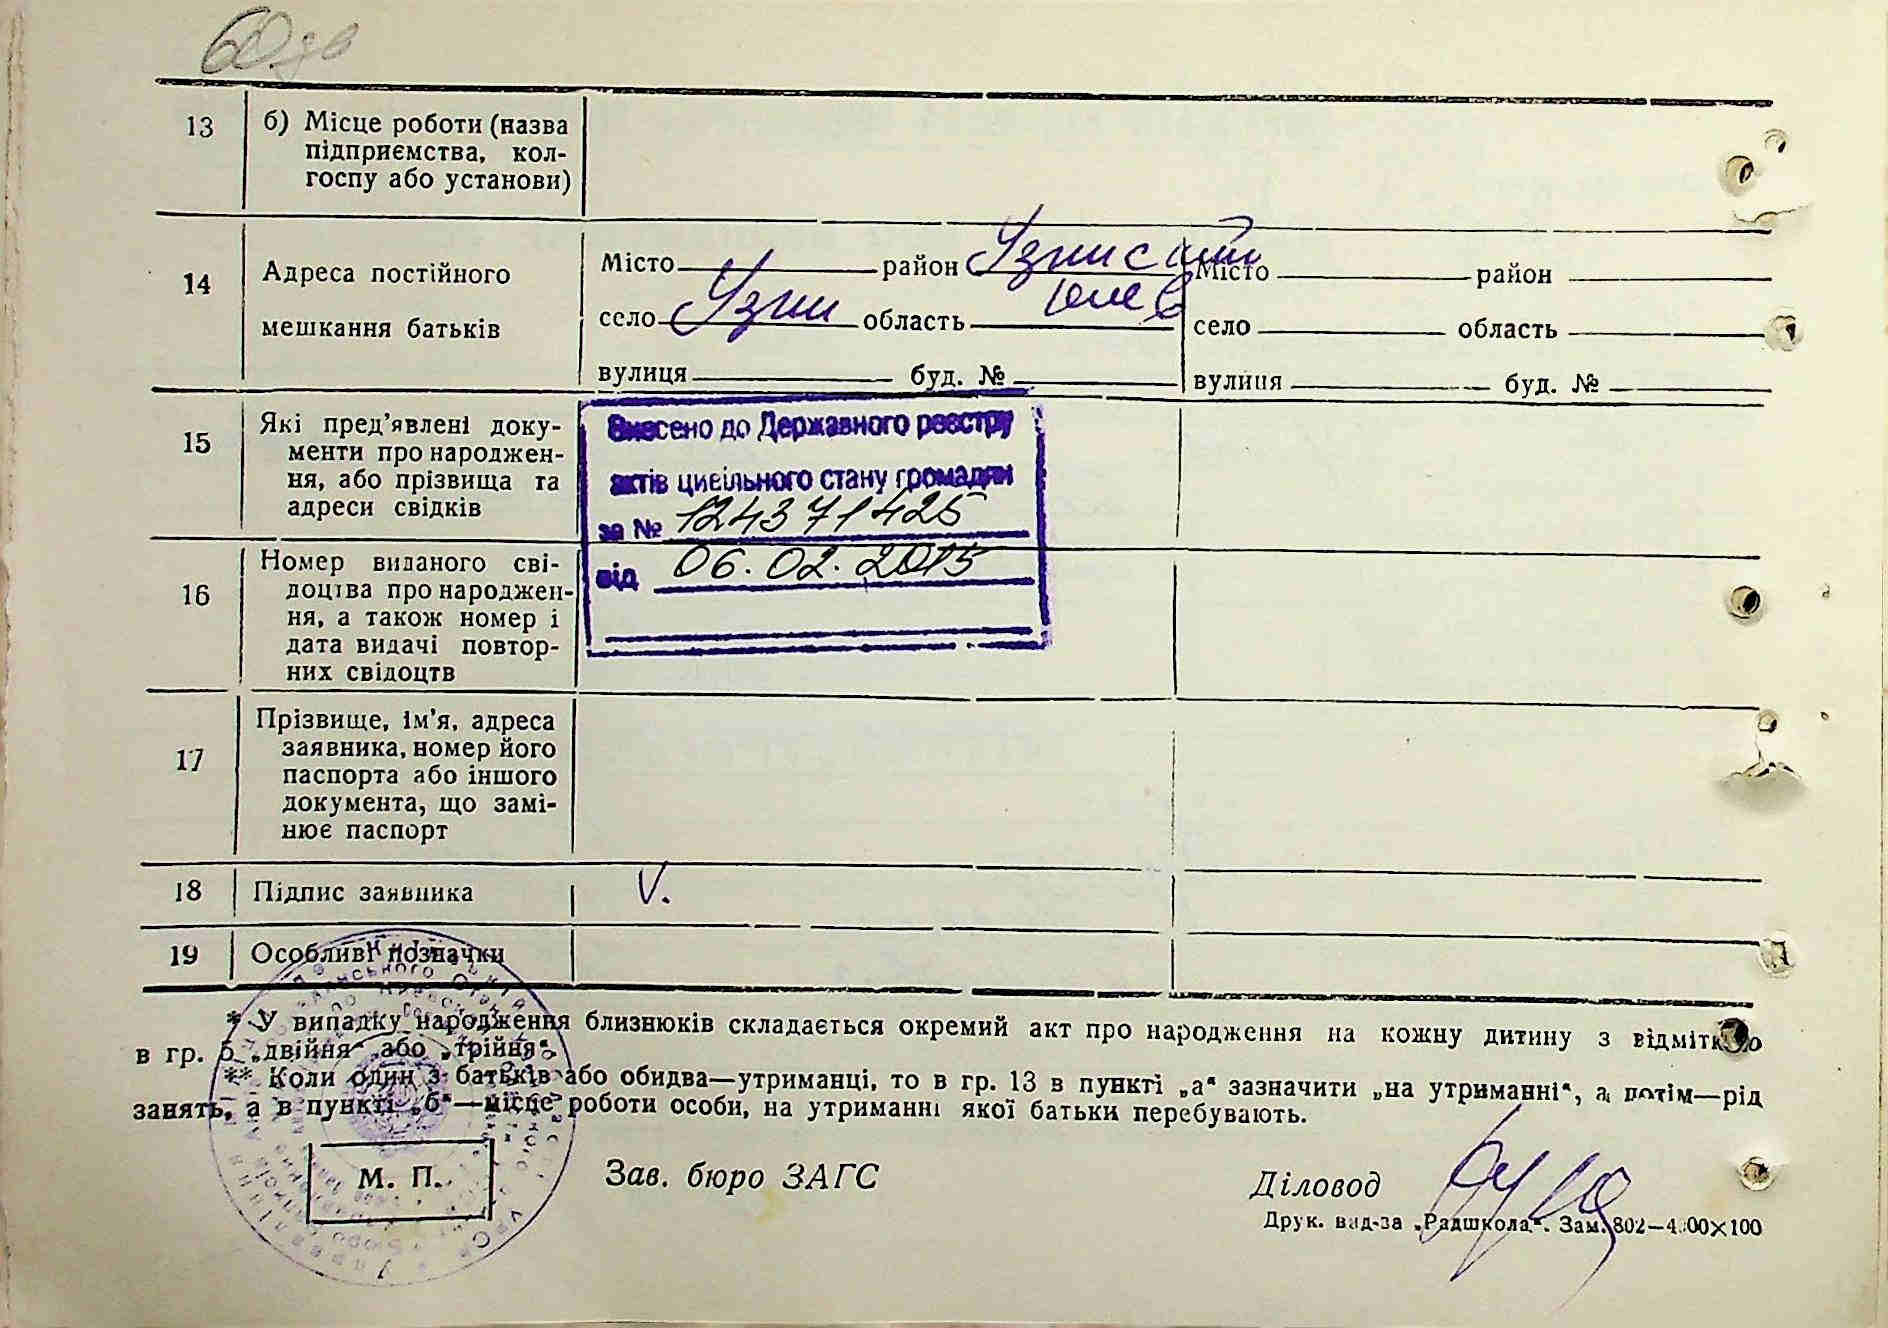 60
13
б) Місце роботи (назва
підприємства, кол-
госпу або установи)
14
Адреса постійного
мешкання батьків
Місто район Узинский
село Узин область Киев
вулиця буд. №
Місто район
село область
вулиця буд. №
15
Які пред’явлені доку-
менти про народжен-
ня, або прізвища та
адреси свідків
Внесено до Державного реєстру
актів цивільного стану громадян
за № 124371425
від 06.02.2015
16
Номер виданого сві-
доцтва про народжен-
ня, а також номер і
дата видачі повтор-
них свідоцтв
17
Прізвище, ім’я, адреса
заявника, номер його
паспорта або іншого
документа, що замі-
нює паспорт
18
Підпис заявника
V.
19
Особливі позначки
* У випадку народження близнюків складається окремий акт про народження на кожну дитину з відміткою
в гр. 5 „двійня“ або „трійня“.
** Коли один з батьків або обидва—утриманці, то в гр. 13 в пункті „а“ зазначити „на утриманні“, а потім—рід
занять, а в пункті „б“—місце роботи особи, на утриманні якої батьки перебувають.
М. П.
Зав. бюро ЗАГС
Діловод
Друк. вид-за „Радшкола“. Зам. 802—4.00×100